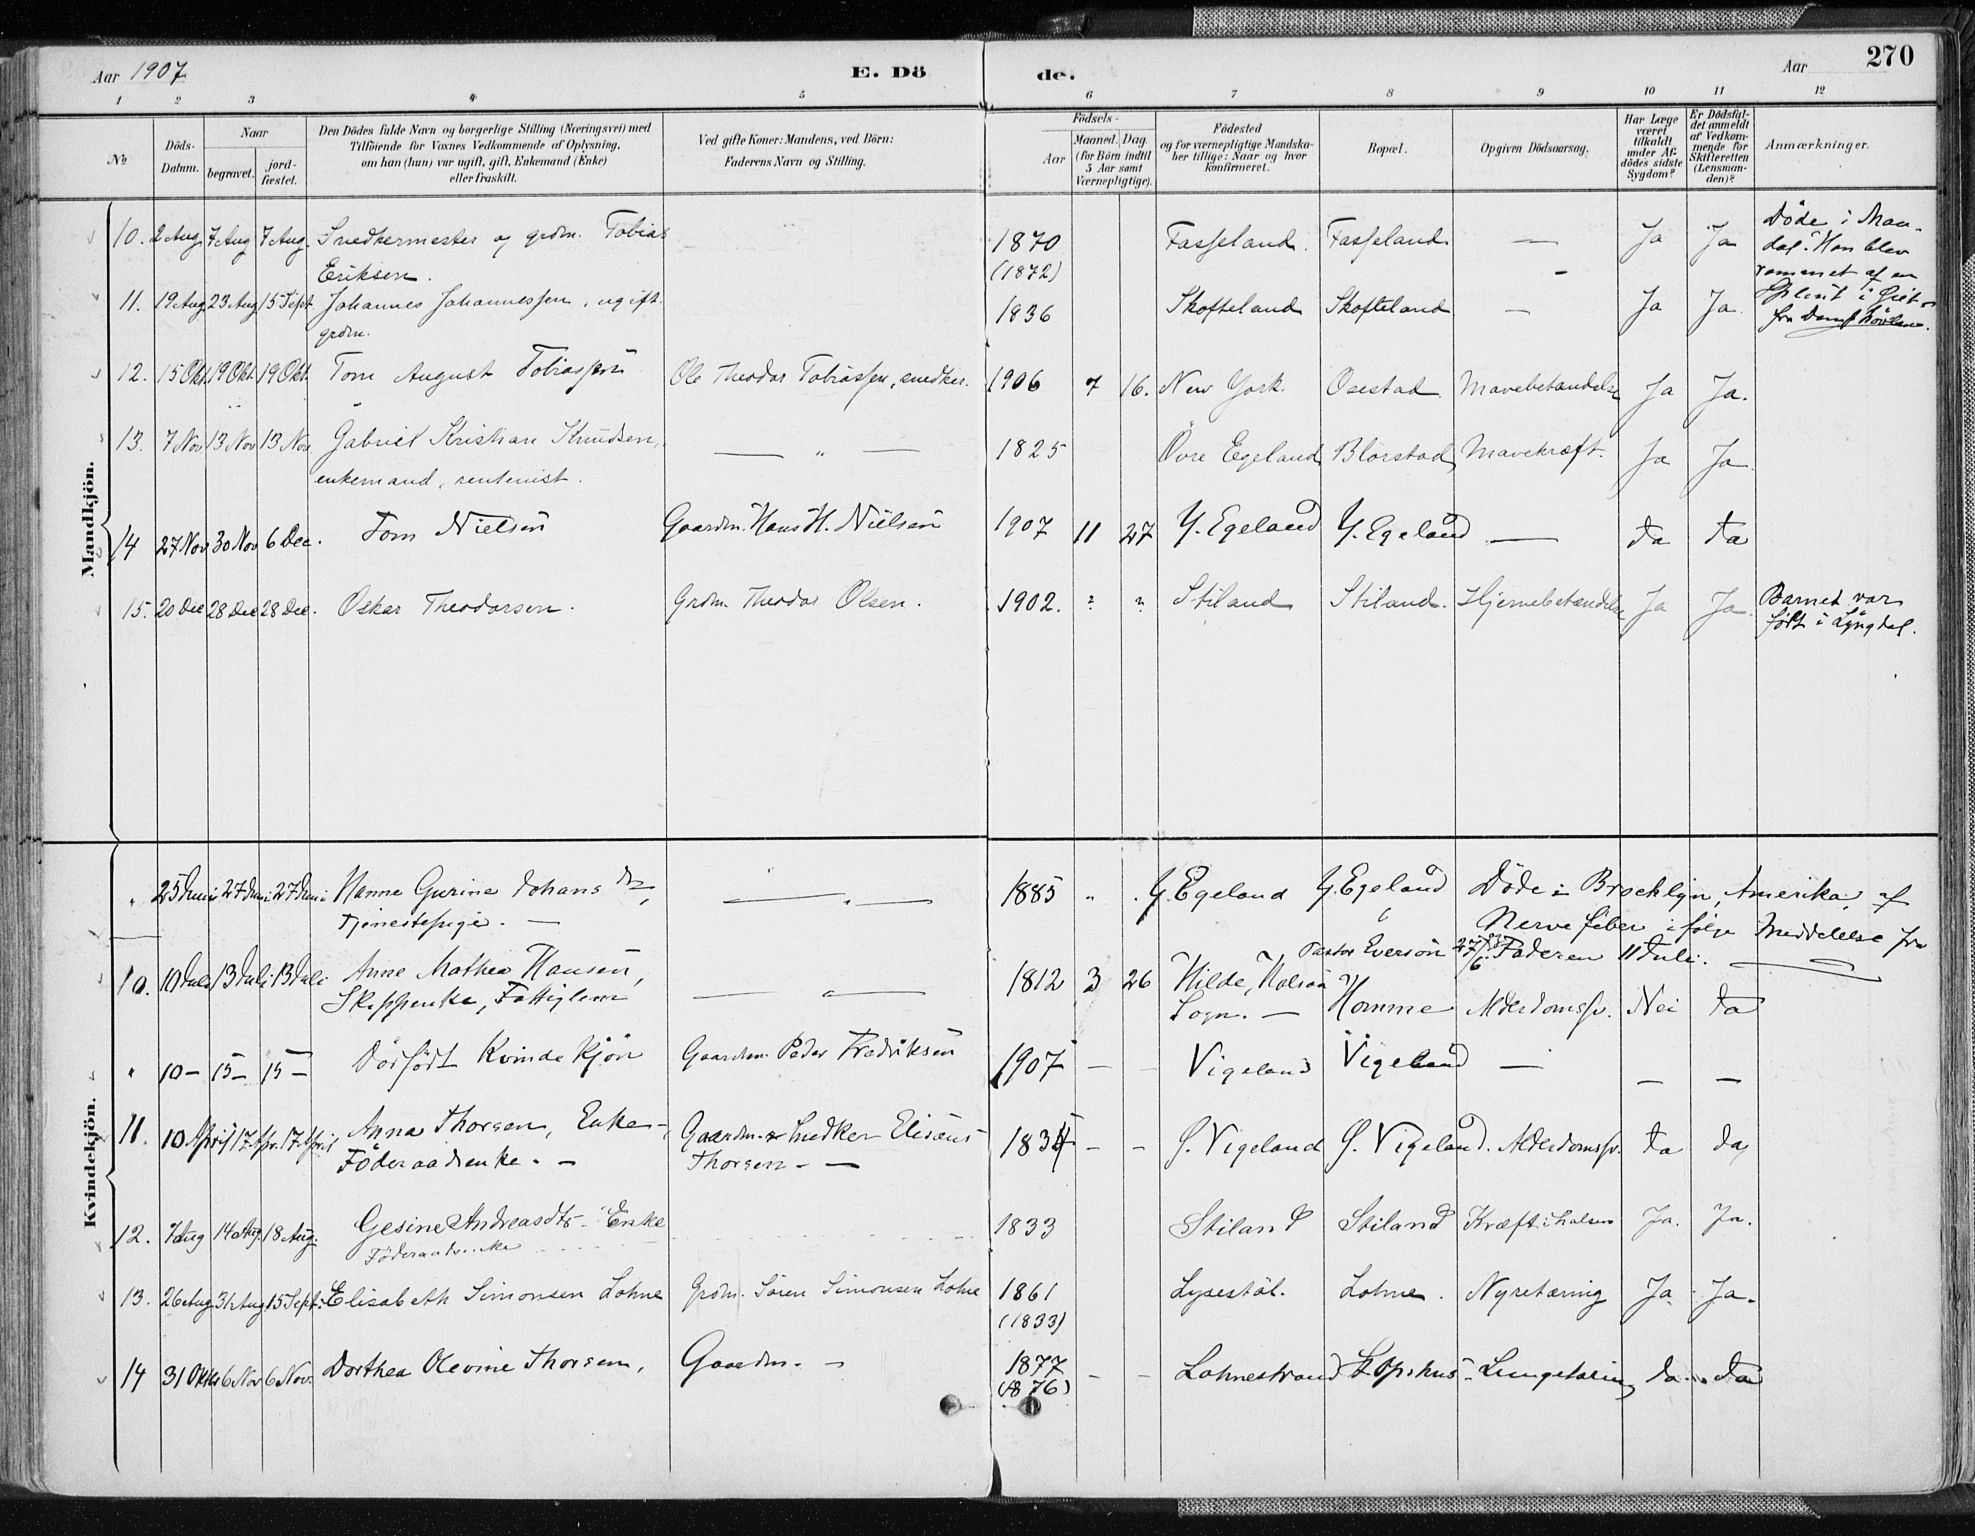 Aar 1907 E. Dö de. Aar 270
1 2 3 4 5 6 7 8 9 10 11 12
№ Döds-Datum. Naar begravet. jordfæstet. Den Dödes fulde Navn og borgerlige Stilling (Næringsvei) med Tilföiende for Voxnes Vedkommende af Oplysning, om han (hun) var ugift, gift, Enkemand (Enke) eller fraskilt. Ved gifte Koner: Mandens, ved Börn: Faderens Navn og Stilling. Födsels- Aar Maaned. Dag. (for Börn indtil 5 Aar samt Værnepligtige). Födested og for værnepligtige Mandskaber tillige: Naar og hvor konfirmeret. Bopæl. Opgiven Dödsaarsag. Har Læge været tilkaldt under Afdödes sidste Sygdom? Er Dödsfaldet anmeldt af Vedkommende for Skifteretten (Lensmanden)? Anmærkninger.
Mandkjön.
10. 2 Aug 7 Aug 7 Aug. Snedkermester og grdm. Tobias 1870 Fasseland. Fasseland. — Ja Ja Döde i Man-
Eriksen. (1872) - dal. Han blev
rammet af en
11. 19 Aug 23 Aug 15 Sept Johannes Johannessen, ugift 1836 Skofteland Skofteland — Ja Ja
grdm. fra
12. 15 Okt. 19 Okt. 19 Okt. Tom August Tobiassen Ole Theodor Tobiassen, snedker. 1906 7 16. New York. Osestad Mavebetændelse Ja Ja.
13. 7 Nov 13 Nov 13 Nov Gabriel Kristian Knudsen, — " — 1825 Övre Egeland Blörstad Mavekræft. Ja Ja
enkemand, rentenist.
14 27 Nov 30 Nov 6 Dec. Tom Nielsen Gaardm. Hans H. Nielsen 1907 11 27 Y. Egeland Y. Egeland — Ja Ja
15. 20 Dec 28 Dec 28 Dec. Oskar Theodorsen. Grdm. Theodor Olsen. 1902. ? ? Stiland Stiland. Hjernebetændelse Ja Ja Barnet var
født i Lyngdal.
Kvindekjön.
" 25 Juni 27 Juni 27 Juni Hanne Gurine Johansdr, — " — 1885 " . Y. Egeland Y. Egeland Döde i Brocklyn, Amerika, af
Tjenestepige. — Nervefeber ifølge Meddelelse fra
Pastor Everson 27/6. Faderen 11 Juli. —
10. 10 Juli 13 Juli 13 Juli Anne Mathea Hansen, — " — 1812 3 26 Hilde, Halsaa Homme Alderdomssv. Nei Ja
Skippenke, Fattiglem Sogn. —
" 10 — 15 — 15 — Dödfödt Kvindekjön Gaardm. Peder Fredriksen 1907 — — Vigeland Vigeland — — —
11. 10 April 17 Apr. 17 April Anna Thorsen, Enke -, Gaardm. & Snedker Elisæus 1834 — — S. Vigeland S. Vigeland. Alderdomssv. Ja Ja
Föderaadsenke. — Thorsen - —
12. 7 Aug 14 Aug 18 Aug. Gesine Andreasdtr. Enke 1833 Stiland Stiland Kræft i halsen Ja. Ja.
13. 26 Aug 31 Aug 15 Sept. Elisabeth Simonsen Lohne Grdm. Sören Simonsen Lohne 1861 Lysestöl. Lohne. Nyretæring Ja Ja.
(1833)
14 31 Oktbr 6 Nov 6 Nov. Dorthea Olevine Thorsen, Gaardm. — 1877 — — Lohnestrand Lungetæring Ja Ja
(1876)